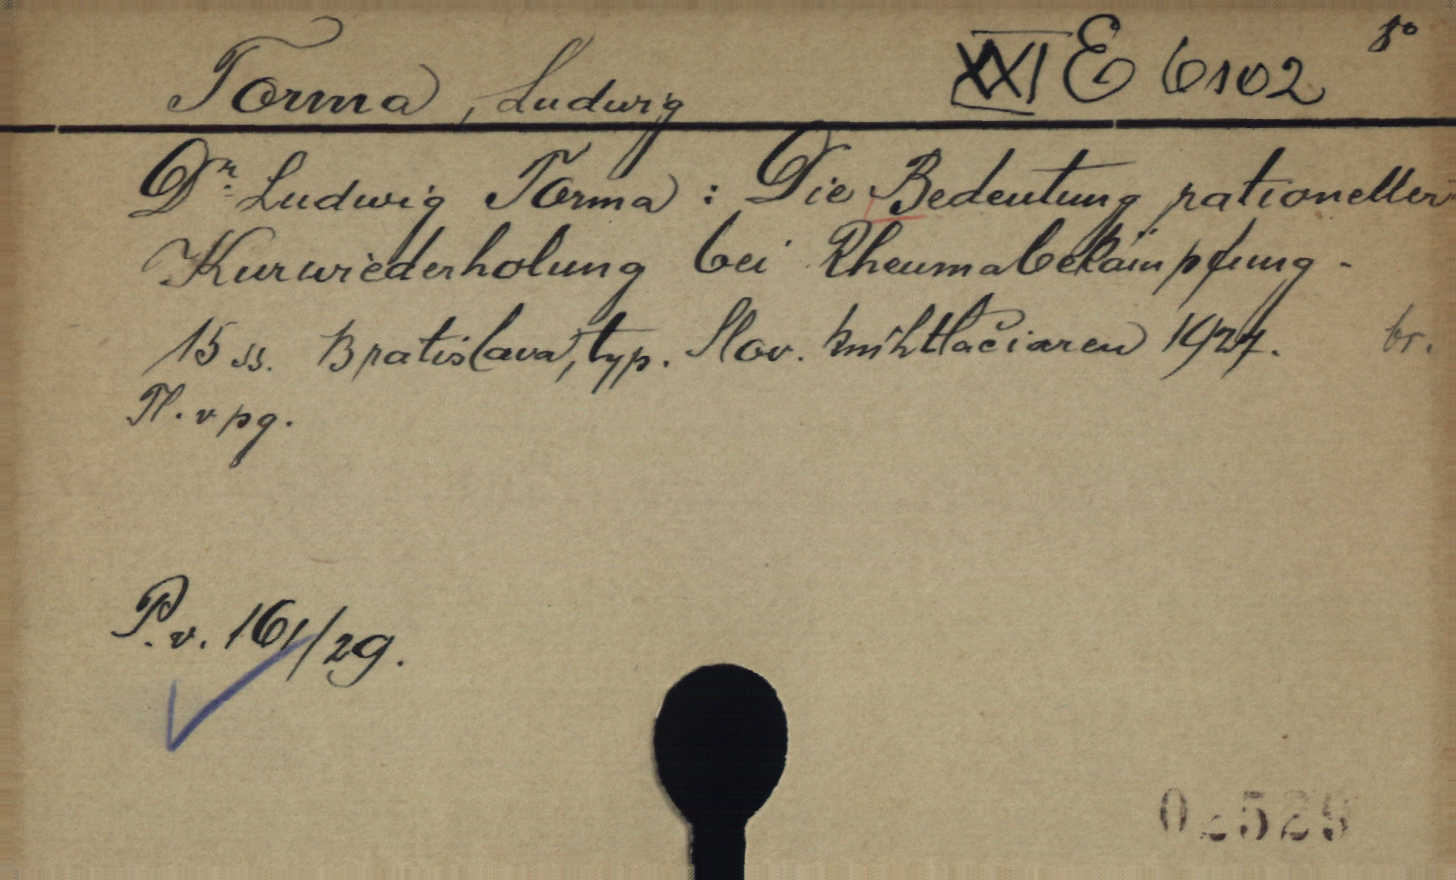 Torma, Ludwig XXI E 6102 8°
Dr. Ludwig Torma : Die Bedeutung rationeller
Kurwiederholung bei Rheumabekämpfung -
15 ss. Bratislava, typ. Slov. knihtlačiaren 1927. br.
Tl. v pg.
P. v. 161/29.
02529